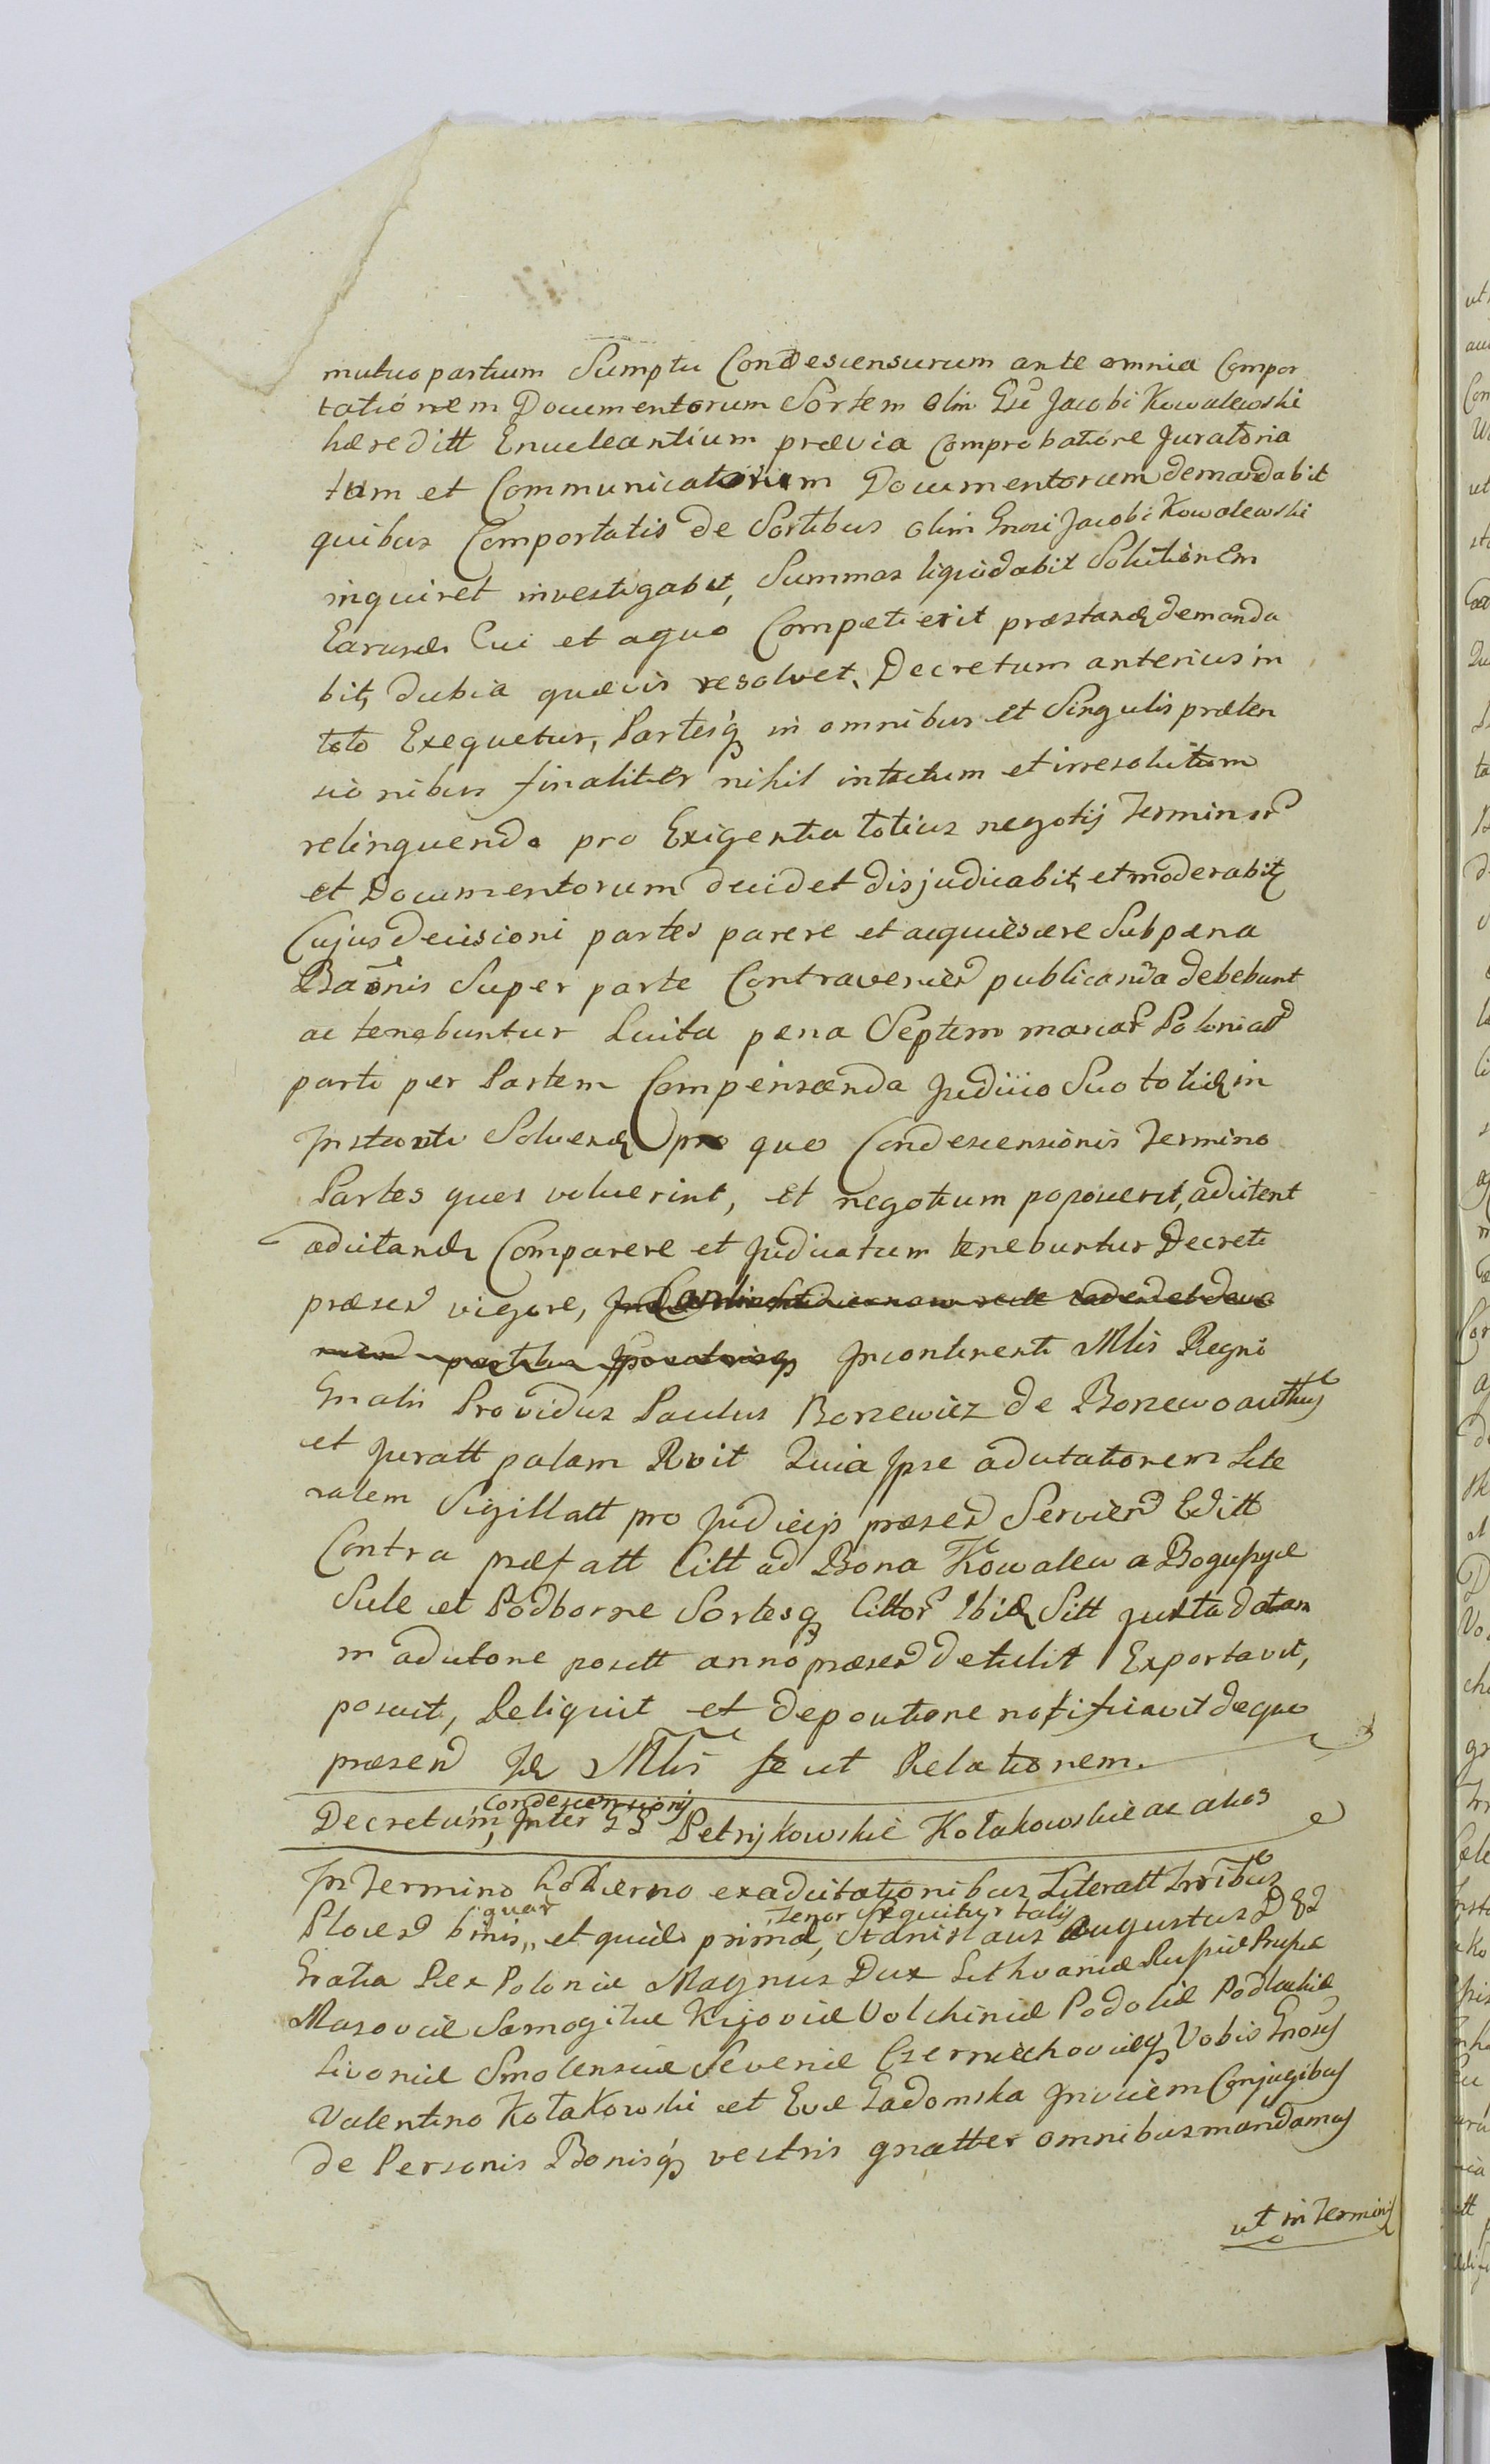 mutuo partium Sumptu Condescensurum ante omnia Compor
tationem Documentorum Sortem olim Gsi Jacobi Kowalewski
hæreditt Enucleantium prævia Comprobatióne Juratoria
tam et Communicatoriam Documentorum demandabit
quibus Comportatis de Sortibus olim Gnosi Jacobi Kowalewski
inquiret investigabit, Summas liquidabit Solutionem
Earund Cui et aquo Competierit præstand demanda
bit, dubia quævis resolvet, Decretum anterius in
toto Exequetur, Partesq in omnibus et Singulis præten
sionibus finaliter nihil intactum et irresolutum
relinquendo pro Exigentia totius negotij Terminor
et Documentorum decidet disjudicabit, et moderabit
Cujus decisioni partes parere et acquiescere Sub pæna
Baonis Super parte Contravenien publicanda debebunt
ac tenebuntur Luita pæna Septem marcar Polonical
parti per Partem Compensanda Judicio Suo totid in
Instanti Solvend pro quo Condescensionis Termino
Partes ques voluerint, et negotium poposcerit, adcitent
adcitand Comparere et Judicatum tenebuntur Decreti
præsen vigore, Incontinenti Mlis Regni
Gnalis Providus Paulus Borzewicz de Borzewo authus
et Juratt palam Rvit Quia Ipse adcitationem Lite
ralem Sigillatt pro Judicijs præsen Servien Editt
Contra præfatt Citt ad Bona Kowalewa Bogupyæ
Sule et Podborne Sortesq Cittor Ibid Sitt juxta datam
in adcitone positt anno præsen detulit Exportavit,
posuit, Reliquit et depositione notificavit de quo
præsen Id Mlis fecit Relationem.
Decretum Condescensionis, Inter GG Petrykowskie Kołakowskie ac alios
In Termino hodierno exadcitationibus Literatt Trribus
Plocen binis, quar et quid prima, tenor Sequitur talis Stanislaus Augustus D G
Gratia Rex Poloniæ Magnus Dux Lithvaniæ Russiæ Prussiæ
Masoviæ Samogitiæ Kijoviæ Volchiniæ Podoliæ Podlachiæ
Livoniæ Smolensciæ Severiæ Czerniechoviæq Vobis Gnosis
Valentino Kołakowski et Evæ Gadomska Invicem Conjugibus
de Personis Bonisq vestris gnatter omnibus mandamus
ut in Terminis